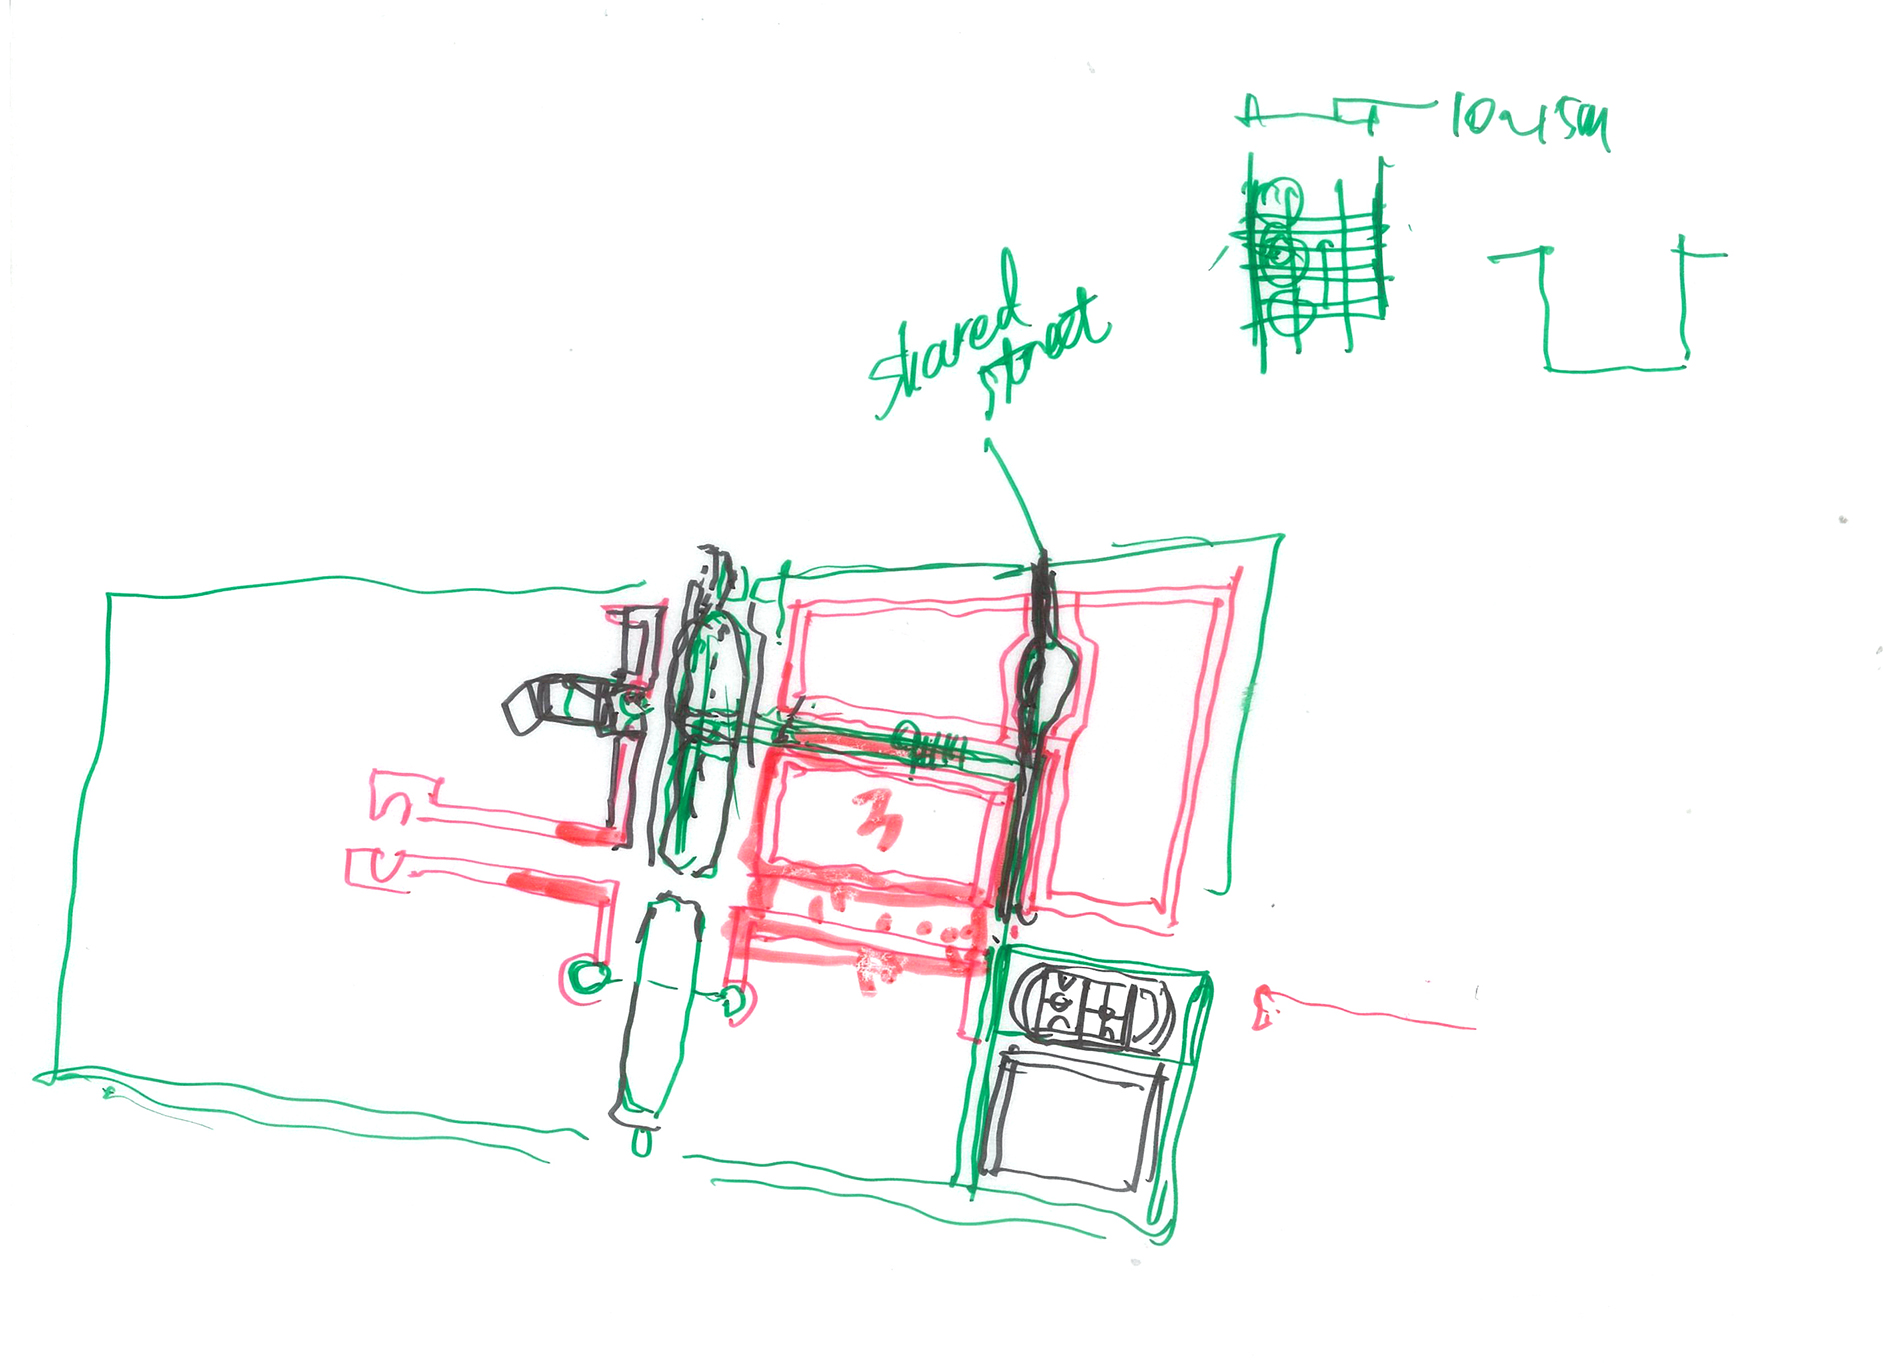 10~15m
shared
street
3